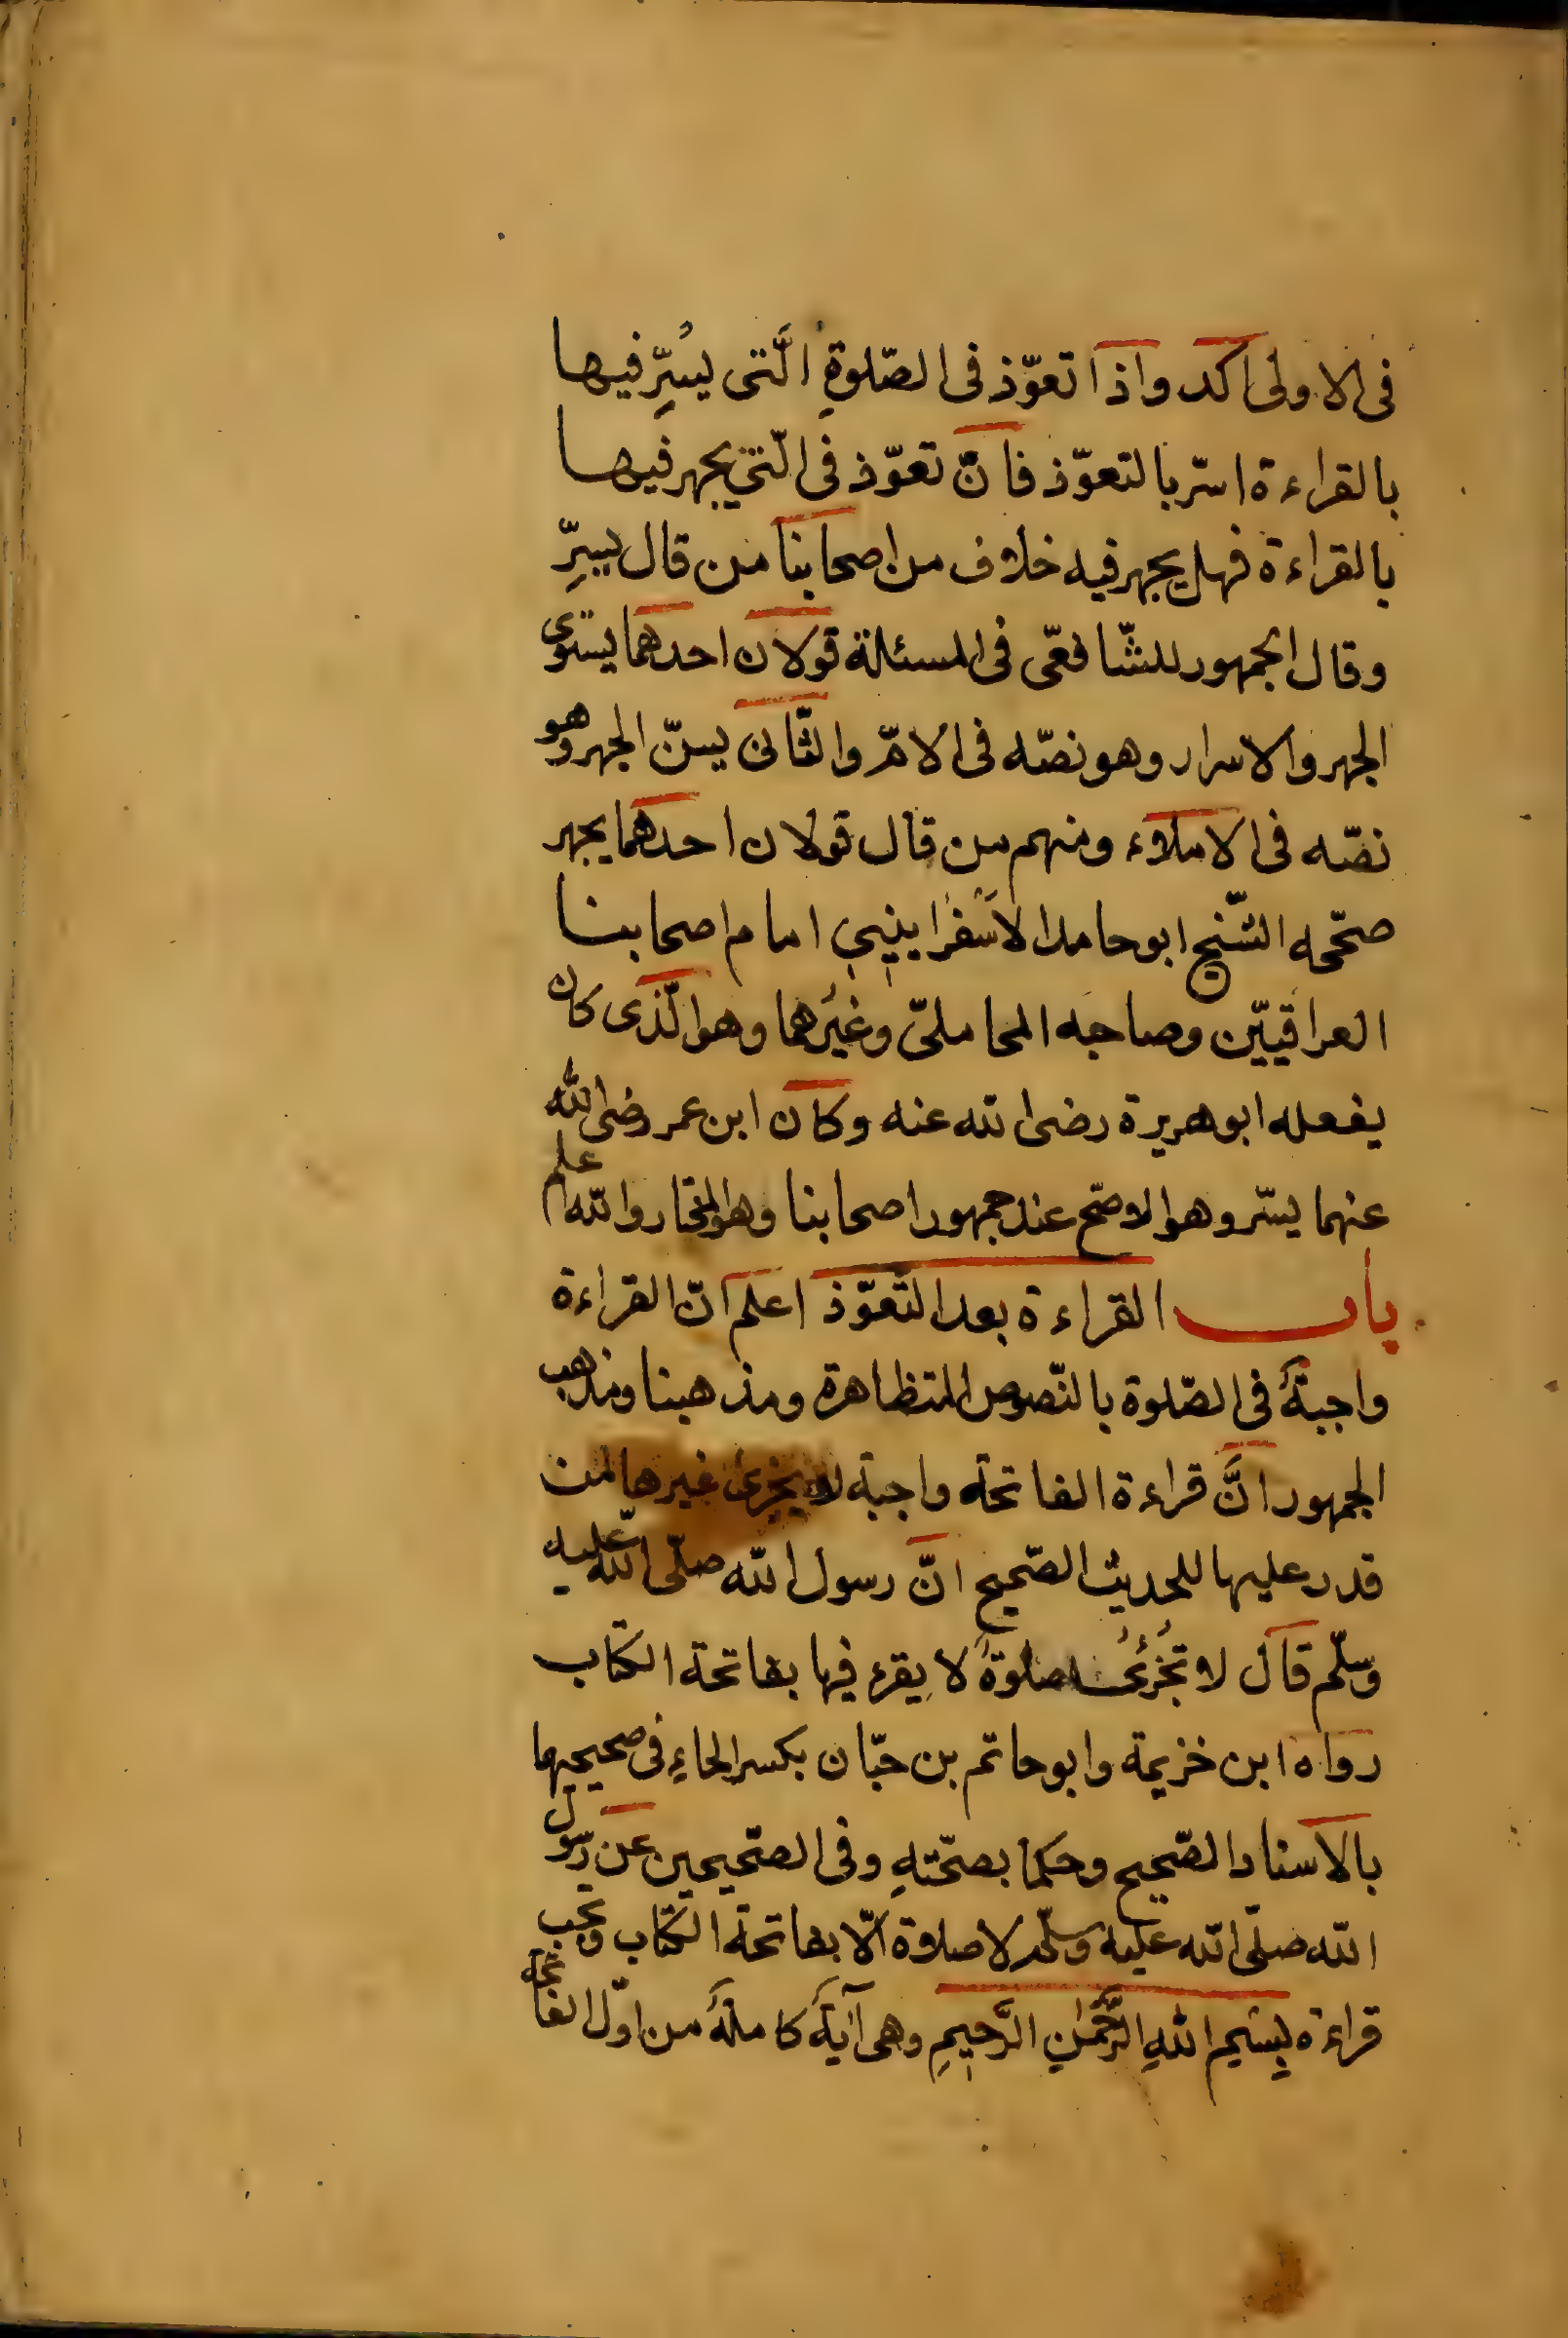 فى الاولى اكد واذا تعوّذ فى الصّلوةِ الَّتى يُسِرِّ فيها
بالقراءة اسّر بالتعوّذ فانّ تعوّذ فى الّتى يجهر فيها
بالقراءة فهل يجهر فيه خلاف من اصحابنا من قال يسِرّ
وقال الجمهور للشّافعّى فى المسئلة قولان احدهما يستوى
الجهر والاسرار وهو نصّه فى الامّ والثّانى يسنّ الجهر وهو
نصّه فى الاملاء ومنهم من قال قولان احدهما يجهر
صحّحه الشّيخ ابو حامد الاَسْفَراييني امام اصحابنا
العراقيّين وصاحبه المحاملىّ وغيرُهما وهو الّذى كان
يفعله ابو هريرة رضى الله عنه وكان ابن عمر رضى الله
عنهما يسّر وهو الاصّح عند جمهور اصحابنا وهو المختار والله اعلم
باب القراءة بعد التّعوّذ اعلم انّ القراءة
واجبةٌ فى الصّلوة بالنّصوص المتظاهرة ومذهبنا ومذهب
الجمهور انَّ قراءة الفاتحة واجبة لا يجزى غيرها لمن
قدر عليها للحديث الصّحيح انّ رسول الله صلّى الله عليه
وسلّم قال لا تُجْزِئُ صلوةٌ لا يقرء فيها بفاتحة الكتاب
رواه ابن خزيمة وابو حاتم بن حبّان بكسر الحاءِ فى صحيحيهما
بالاسناد الصّحيح وحكما بصحّتهِ وفى الصّحيحين عن رسول
الله صلّى الله عليه وسلّم لا صلاوة الّا بفاتحة الكتاب وتجب
قراءة بِسْمِ اللهِ الرَّحْمٰنِ الرَّحِيمِ وهى آيةٌ كاملةٌ من اوّل الفاتحة